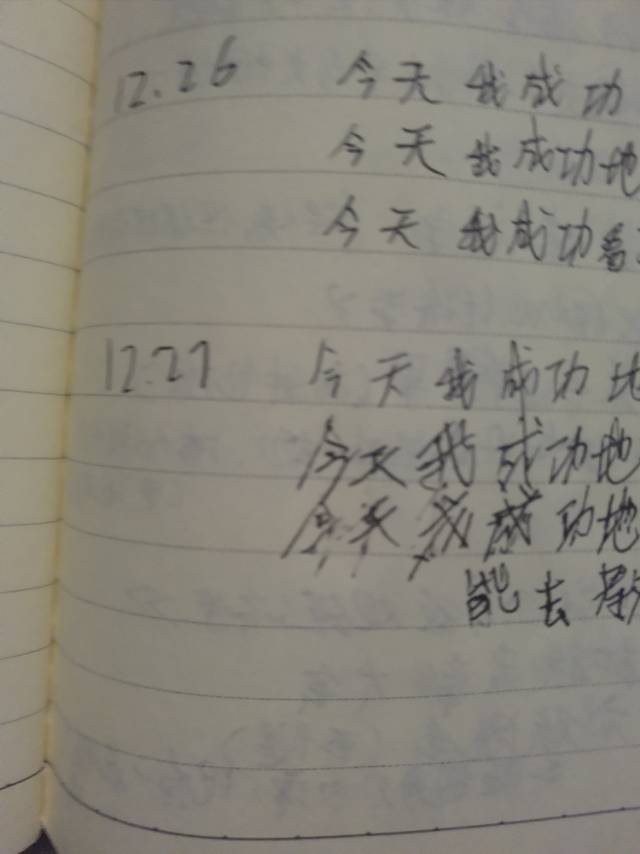 12.26 今天我成功
今天我成功地
今天我成功着
12.27 今天我成功地
今天我成功地
今天我成功地
能去